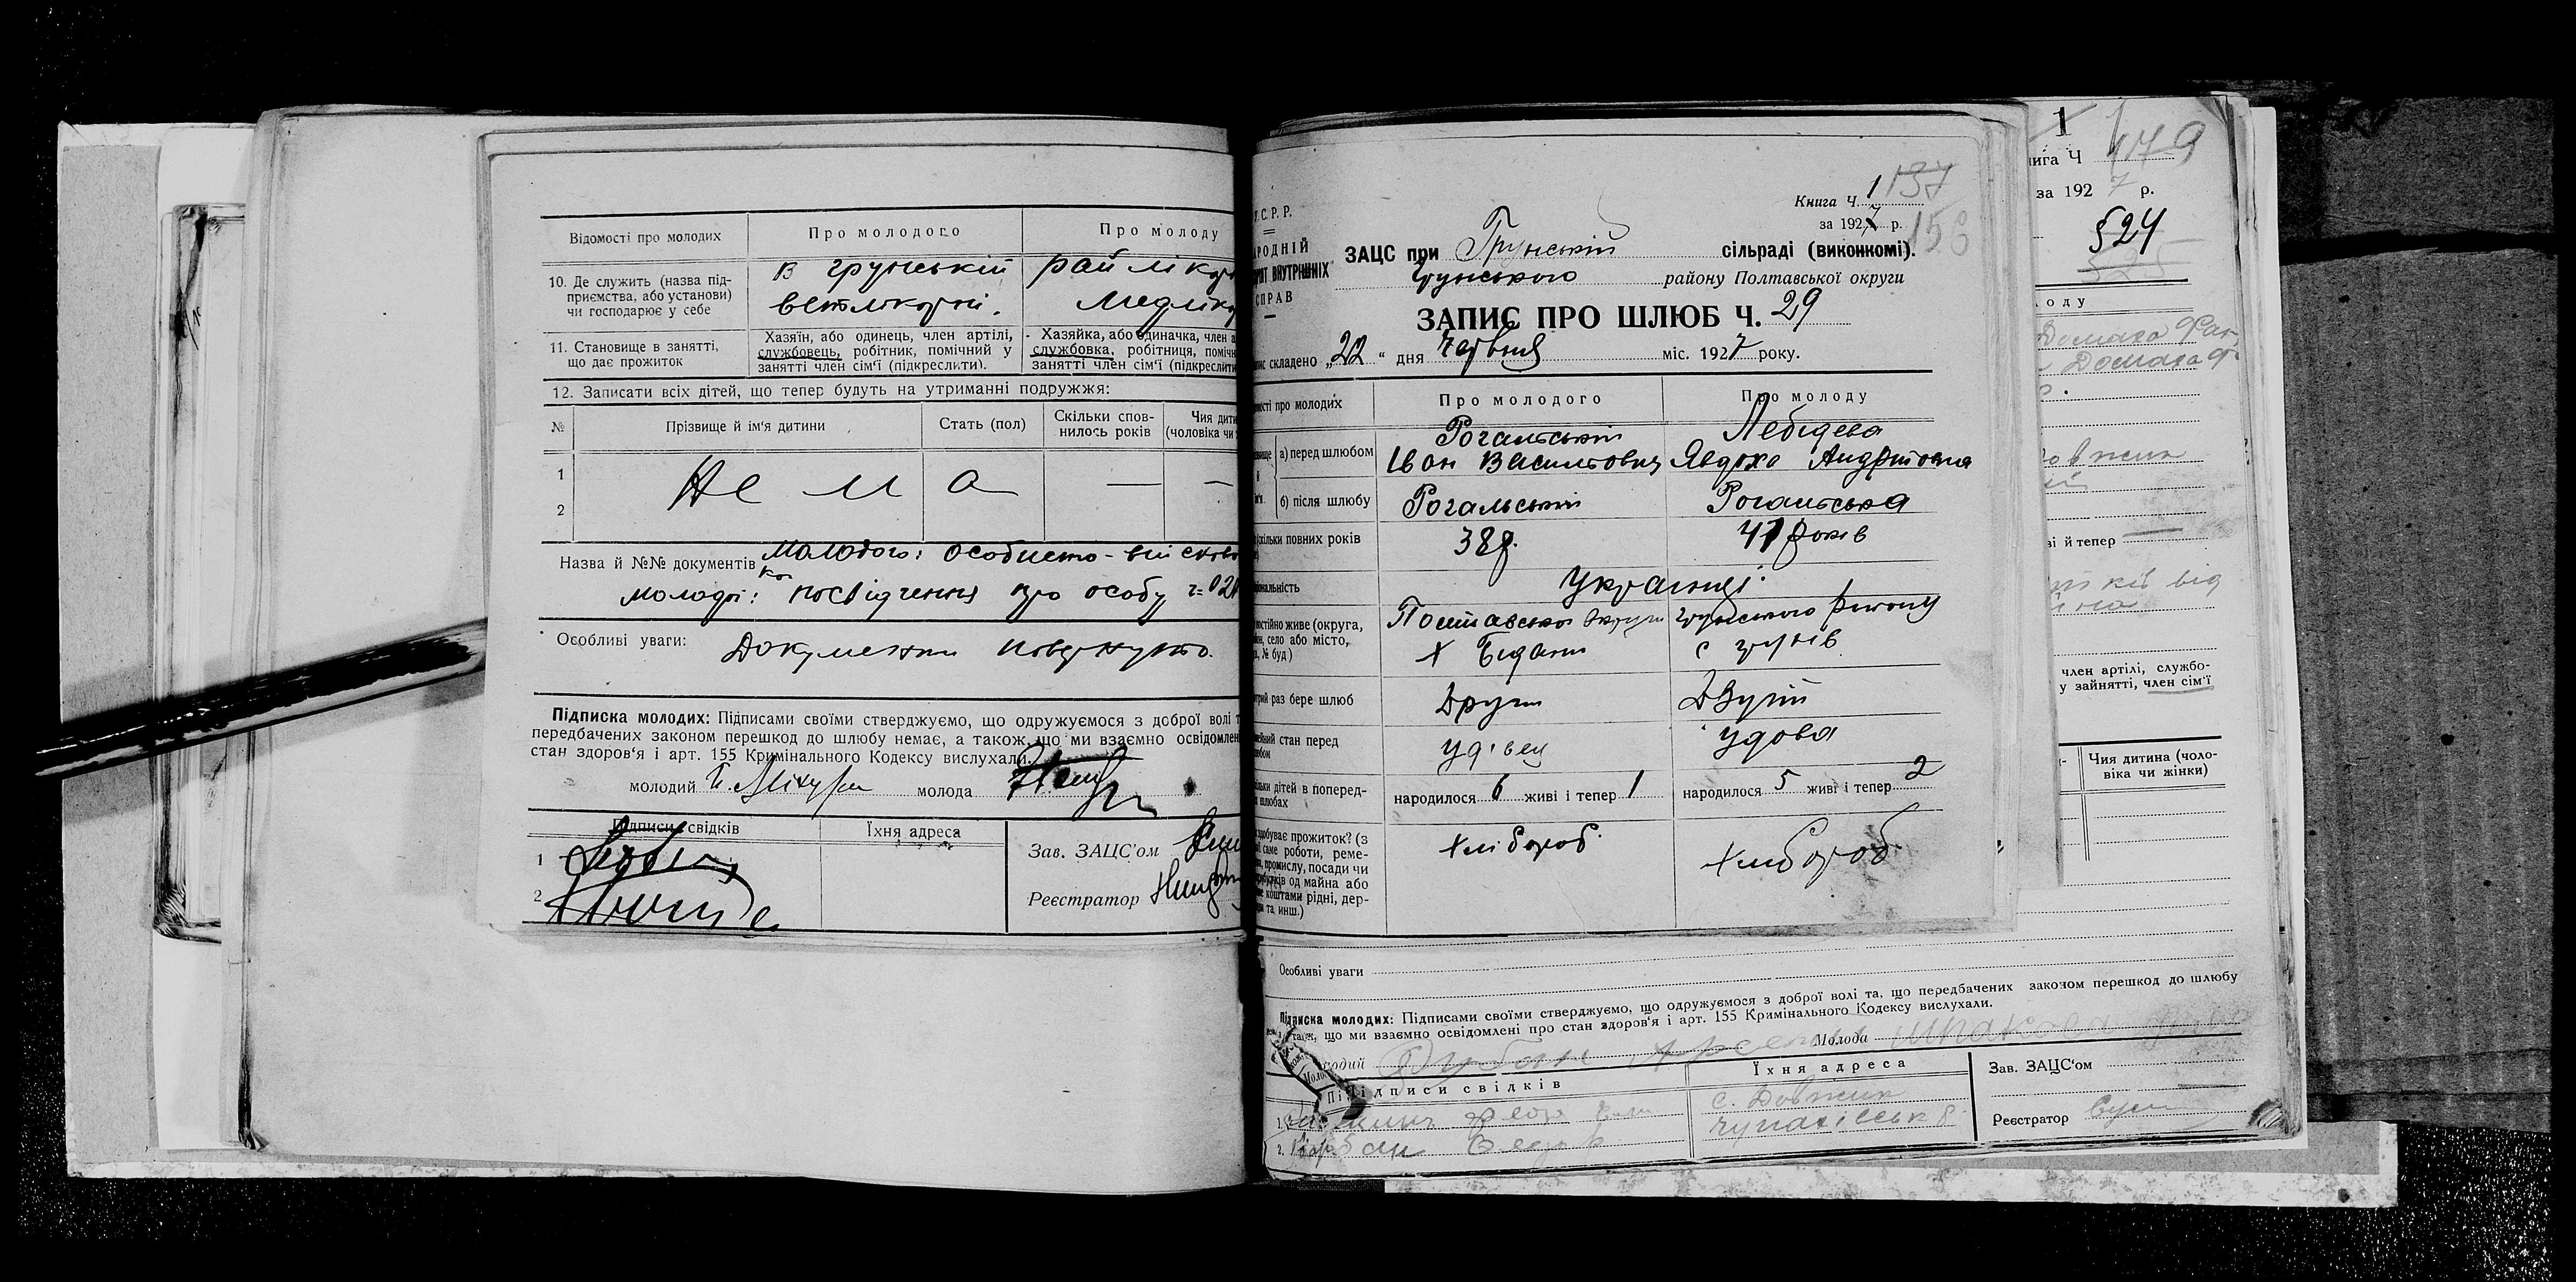 Відомості про молодих
Про молодого
Про молоду
10. Де служить (назва під-
приємства, або установи)
чи господарює у себе
в грунській
ветлікарні.
рай лікар
Медліка
11. Становище в занятті,
що дає прожиток
Хазяїн, або одинець, член артілі,
службовець, робітник, помічний у
занятті член сім'ї (підкреслити).
Хазяйка, або одиначка, член а
службовка, робітниця, помічн
занятті член сім'ї (підкреслити
12. Записати всіх дітей, що тепер будуть на утриманні подружжя:
№
Прізвище й ім'я дитини
Стать (пол)
Скільки спов-
нилось років
Чия дити
(чоловіка чи
1
2
Не м а — —
Назва й №№ документів молодого: особисто-військово
молодої: посвідчення про особу
Особливі уваги: Документи повернуто.
Підписка молодих: Підписами своїми стверджуємо, що одружуємося з доброї волі т
передбачених законом перешкод до шлюбу немає, а також, що ми взаємно освідомлен
стан здоров'я і арт. 155 Кримінального Кодексу вислухали.
молодий
молода
Підписи свідків
Їхня адреса
Зав. ЗАЦС'ом
1
2
Реєстратор
.С.Р.Р.
АРОДНІЙ
ВНУТРІШНІХ
СПРАВ
Книга Ч. 1
137
за 1927 р.
156
ЗАЦС при Грунській сільраді (виконкомі).
Грунського району Полтавської округи
ЗАПИС ПРО ШЛЮБ Ч. 29
пис складено „22“ дня червня міс. 1927 року.
мості про молодих
Про молодого
Про молоду
а) перед шлюбом
Рогальський
Іван Васильович
Лебідева
Явдоха Андріївна
б) після шлюбу
Рогальський
Рогальська
кільки повних років
38 р.
41 років
ональність
Українці
постійно живе (округа,
н, село або місто,
№ буд)
Полтавської округи Грунського району
х Бідани
с Грунів
трий раз бере шлюб
Другий
Другий
мейний стан перед
юбом
Удівец
Удова
льки дітей в поперед-
шлюбах
народилося 6 живі і тепер 1
народилося 5 живі і тепер 2
здобуває прожиток? (з
саме роботи, реме-
промислу, посади чи
од майна або
коштами рідні, дер-
та инш.)
Хлібороб
Хлібороб
1
нига Ч 179
за 1927 р.
524
525
лоду
Домаха
Домаха
овжик
ві й тепер
від
член артілі, службо-
у зайнятті, член сім'ї
Чия дитина (чоло-
віка чи жінки)
Особливі уваги
Підписка молодих: Підписами своїми стверджуємо, що одружуємося з доброї волі та, що передбачених законом перешкод до шлюбу
також, що ми взаємно освідомлені про стан здоров'я і арт. 155 Кримінального Кодексу вислухали.
Молода
Підписи свідків
Їхня адреса
Зав. ЗАЦС'ом
1.
с. Довжик
2.
Реєстратор